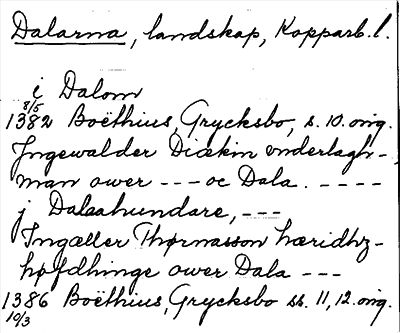 Dalarna, landskap, Kopparb. l.
i Dalom
8/5
1382 Boëthius, Grycksbo, s. 10. orig.
Jngewalder Diækin vnderlagh-
man ower --- oc Dala. ----
j Daleahundare, ---
Ingæller Thørnasson hæridhz-
høfdhinge ower Dala ---
1386 Boëthius, Grycksbo ss. 11, 12. orig.
10/3